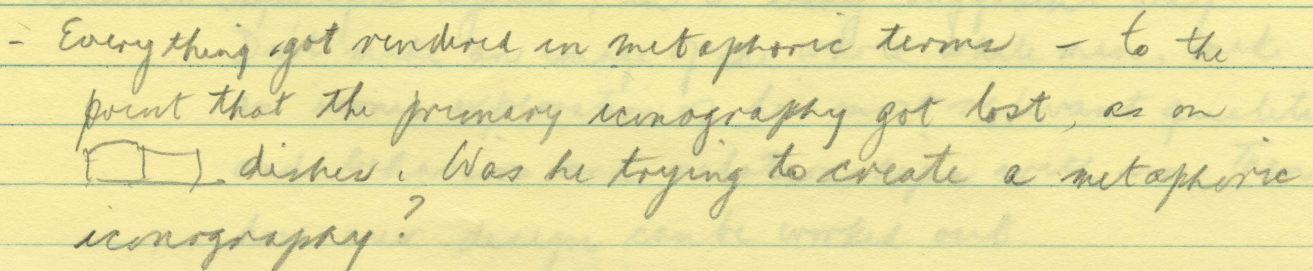 - Everything got rendered in metaphoric terms - to the
point that the primary iconography got lost, as on
dishes. Was he trying to create a metaphoric
iconography?